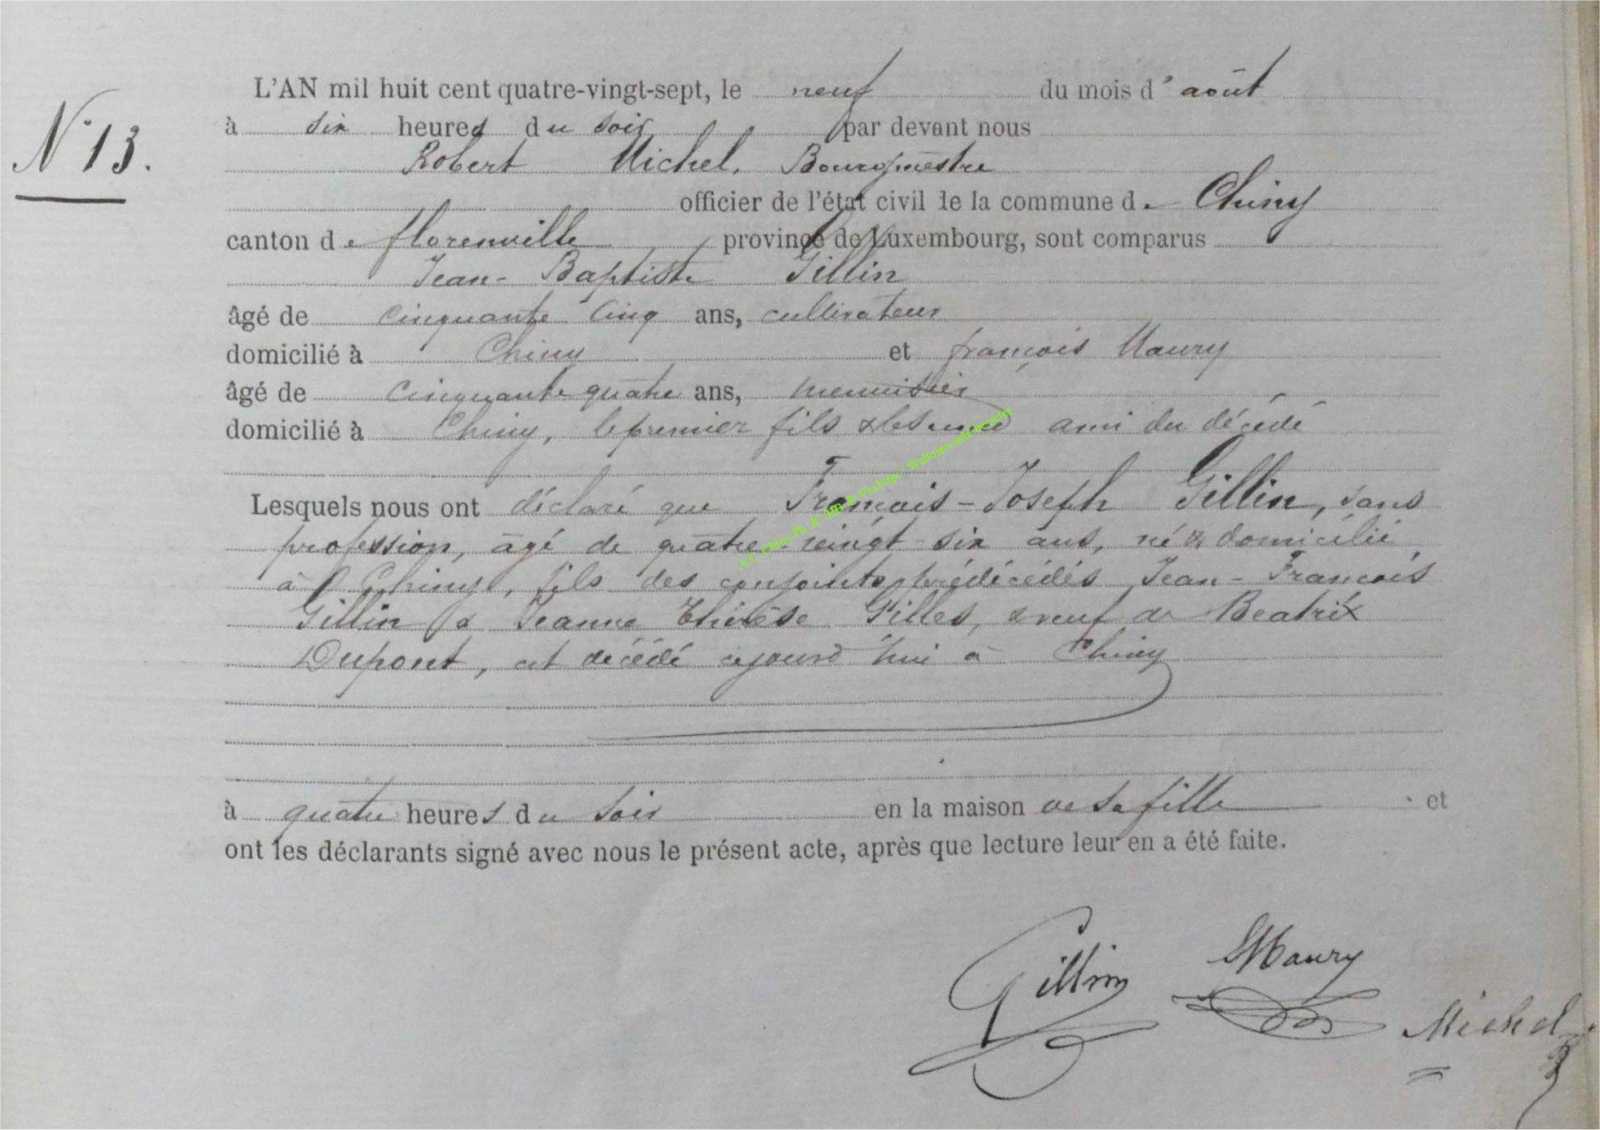 N° 13.
L'AN mil huit cent quatre-vingt-sept, le neuf du mois d' août
à six heures du soir par devant nous
Robert Michel, Bourgmestre
officier de l'état civil de la commune de Chiny
canton de florenville province de Luxembourg, sont comparus
Jean-Baptiste Gillin
âgé de cinquante cinq ans, cultivateur
domicilié à Chiny et françois Maury
âgé de cinquante quatre ans, menuisier
domicilié à Chiny, le premier fils & le second ami du décédé
Lesquels nous ont déclaré que François-Joseph Gillin, sans
profession, âgé de quatre-vingt-six ans, né & domicilié
à Chiny, fils des conjoints prédécédés Jean-François
Gillin & Jeanne Thérèse Gilles, veuf de Beatrix
Dupont, est décédé cejourd'hui à Chiny
à quatre heures du soir en la maison de sa fille et
ont les déclarants signé avec nous le présent acte, après que lecture leur en a été faite.
Gillin Maury
Michel